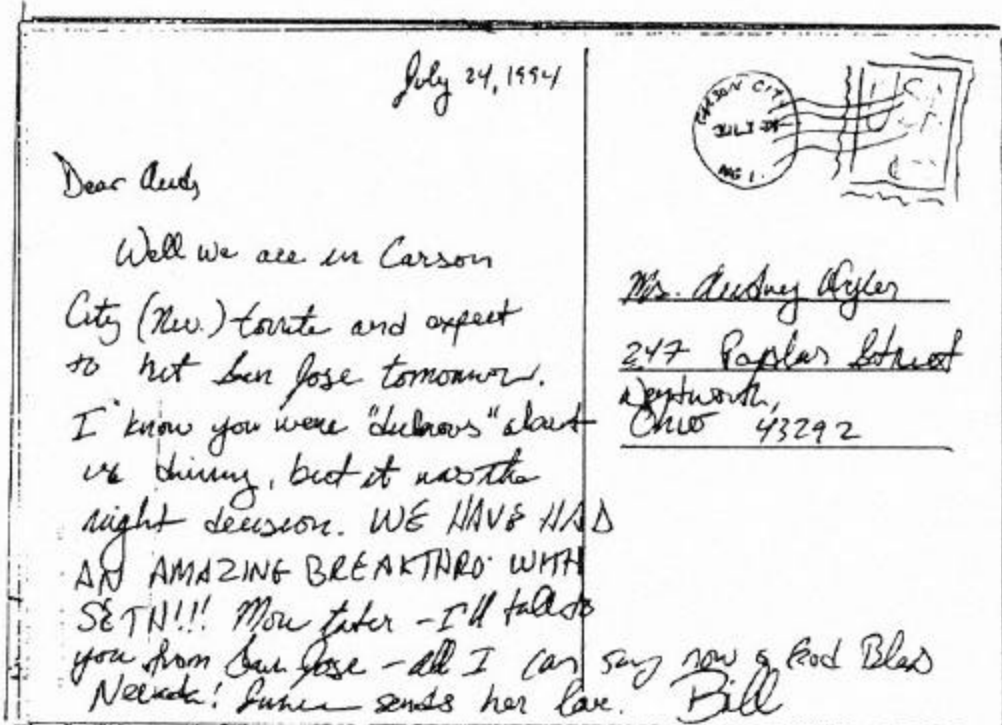 July 24, 1994
CARSON CITY
JUL
Dear Auds,
Well we are in Carson
City (Nev.) tonite and expect
to hit San Jose tomorrow.
I know you were "dubious" about
us driving, but it was the
right decision. WE HAVE HAD
AN AMAZING BREAKTHRO' WITH
SETH!!! More later - I'll talk to
you from San Jose - all I can say now is God Bless
Nevada! sends her love. Bill
Ms. Audrey
247 Poplar Street
Wentworth,
Ohio 43292